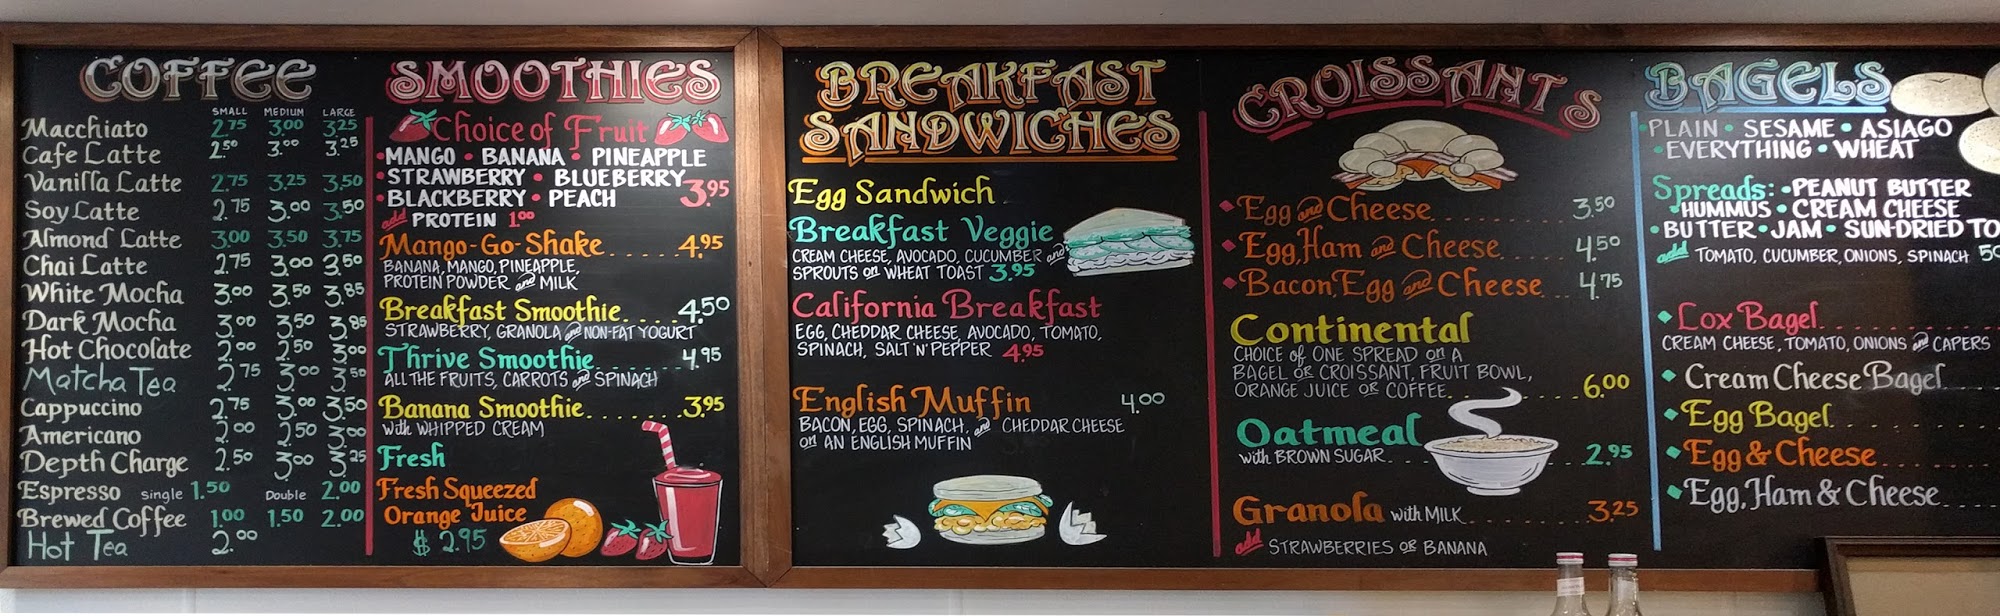 COFFEE
SMALL MEDIUM LARGE
Macchiato 2.75 3.00 3.25
Cafe Latte 2.50 3.00 3.25
Vanilla Latte 2.75 3.25 3.50
Soy Latte 2.75 3.00 3.50
Almond Latte 3.00 3.50 3.75
Chai Latte 2.75 3.00 3.50
White Mocha 3.00 3.50 3.85
Dark Mocha 3.00 3.50 3.85
Hot Chocolate 2.00 2.50 3.00
Matcha Tea 2.75 3.00 3.50
Cappuccino 2.75 3.00 3.50
Americano 2.00 2.50 3.00
Depth Charge 2.50 3.00 3.25
Espresso Single 1.50 Double 2.00
Brewed Coffee 1.00 1.50 2.00
Hot Tea 2.00
SMOOTHIES
Choice of Fruit
• MANGO • BANANA • PINEAPPLE
• STRAWBERRY • BLUEBERRY
• BLACKBERRY • PEACH 3.95
add PROTEIN 1.00
Mango-Go-Shake...... 4.95
BANANA, MANGO, PINEAPPLE,
PROTEIN POWDER and MILK
Breakfast Smoothie.... 4.50
STRAWBERRY, GRANOLA and NON-FAT YOGURT
Thrive Smoothie...... 4.95
ALL THE FRUITS, CARROTS and SPINACH
Banana Smoothie....... 3.95
with WHIPPED CREAM
Fresh
Fresh Squeezed
Orange Juice
$ 2.95
BREAKFAST
SANDWICHES
Egg Sandwich
Breakfast Veggie
CREAM CHEESE, AVOCADO, CUCUMBER and
SPROUTS on WHEAT TOAST 3.95
California Breakfast
EGG, CHEDDAR CHEESE, AVOCADO, TOMATO,
SPINACH, SALT 'N' PEPPER 4.95
English Muffin 4.00
BACON, EGG, SPINACH, and CHEDDAR CHEESE
on AN ENGLISH MUFFIN
CROISSANTS
Egg and Cheese............ 3.50
Egg, Ham and Cheese....... 4.50
Bacon, Egg and Cheese... 4.75
Continental
CHOICE of ONE SPREAD on A
BAGEL OR CROISSANT, FRUIT BOWL,
ORANGE JUICE OR COFFEE........ 6.00
Oatmeal
with BROWN SUGAR....... 2.95
Granola with MILK.......... 3.25
add STRAWBERRIES OR BANANA
BAGELS
• PLAIN • SESAME • ASIAGO
• EVERYTHING • WHEAT
Spreads: • PEANUT BUTTER
• HUMMUS • CREAM CHEESE
• BUTTER • JAM • SUN-DRIED TO
add TOMATO, CUCUMBER, ONIONS, SPINACH 50
Lox Bagel............
CREAM CHEESE, TOMATO, ONIONS and CAPERS
Cream Cheese Bagel....
Egg Bagel............
Egg & Cheese........
Egg, Ham & Cheese....